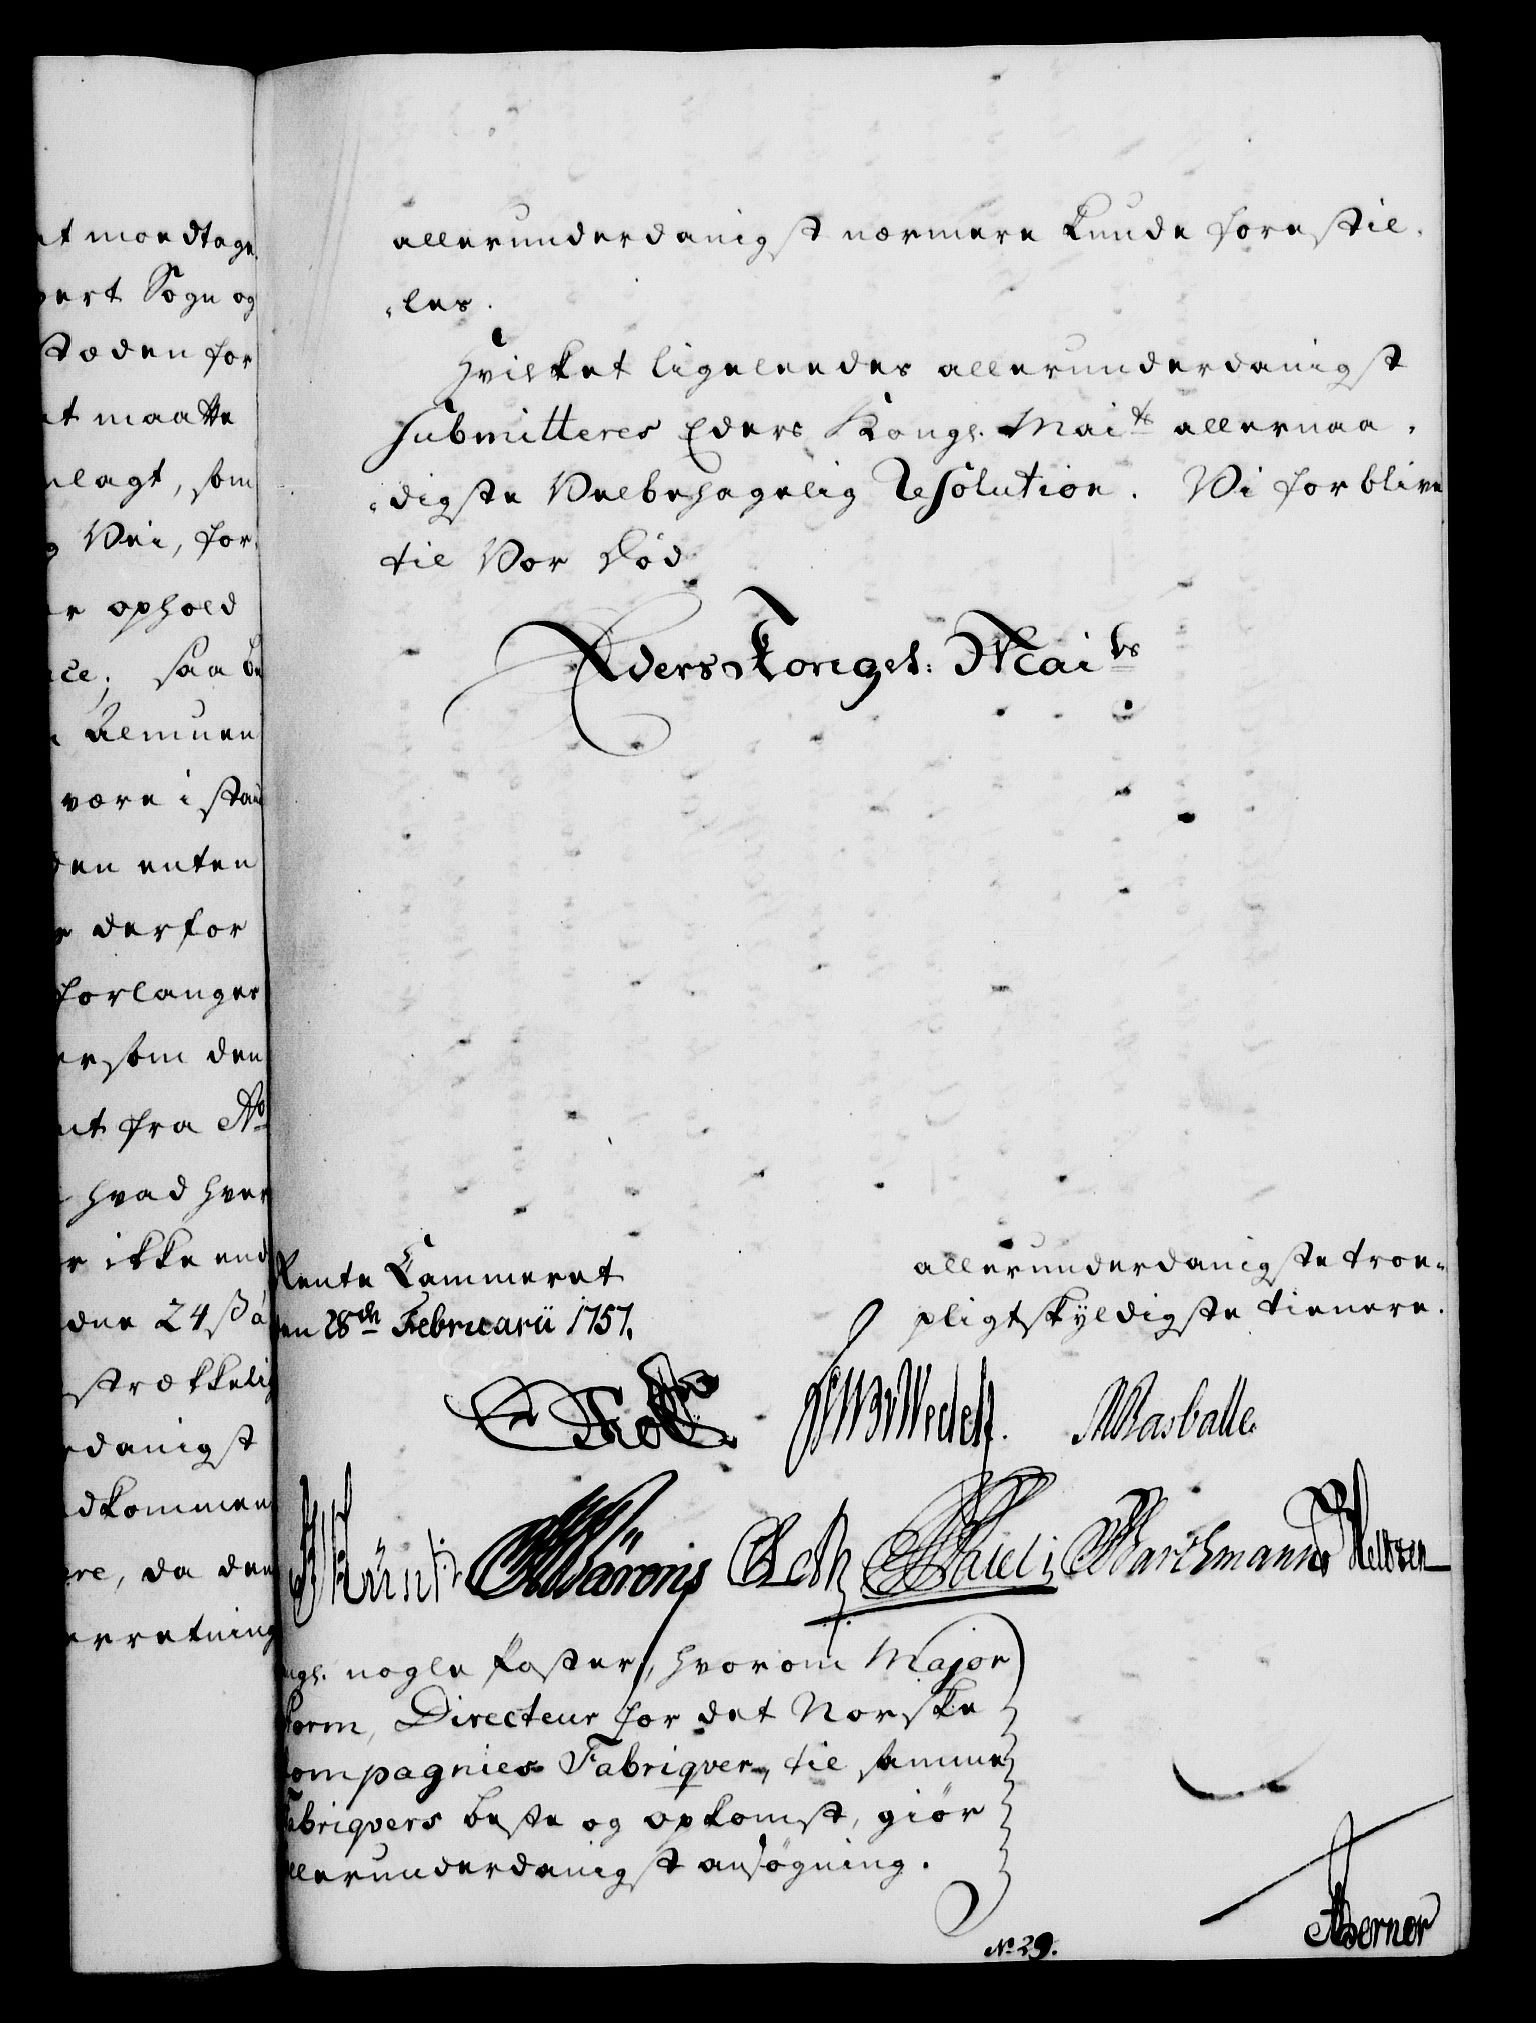 at modtage
vert Sogn og
Stæden for
at maatte
elagt, som
Vei, for
er ophold
ce; saa be
Almuen
være i stan
den enten
derfor
forlanges
ersom den
nt fra No
hvad hver
r ikke end
dne 24 ß a
strækkelig
danigst
dkommen
re, da den
erretning
allerunderdanigst nærmere kunde forestil-
-les.
Hvilket ligeleedes allerunderdanigst
submitteres Eders Kongl. Maits allernaa-
-digste Velbehagelig Resolution. Vi forblive
til Vor død
Eders Kongel: Maits
Rente Cammeret
en 28de Februarii 1757.
allerunderdanigste troe-
pligtskyldigste tienere.
Holst
Wedell.
Rasballe.
Pauli
Barthmann
ngl. nogle Poster, hvorom Major
torm, Directeur for det Norske
Compagnies Fabriqver, til samme
Fabriqvers beste og opkomst, giør
allerunderdanigst ansøgning.
No 29.
Berner